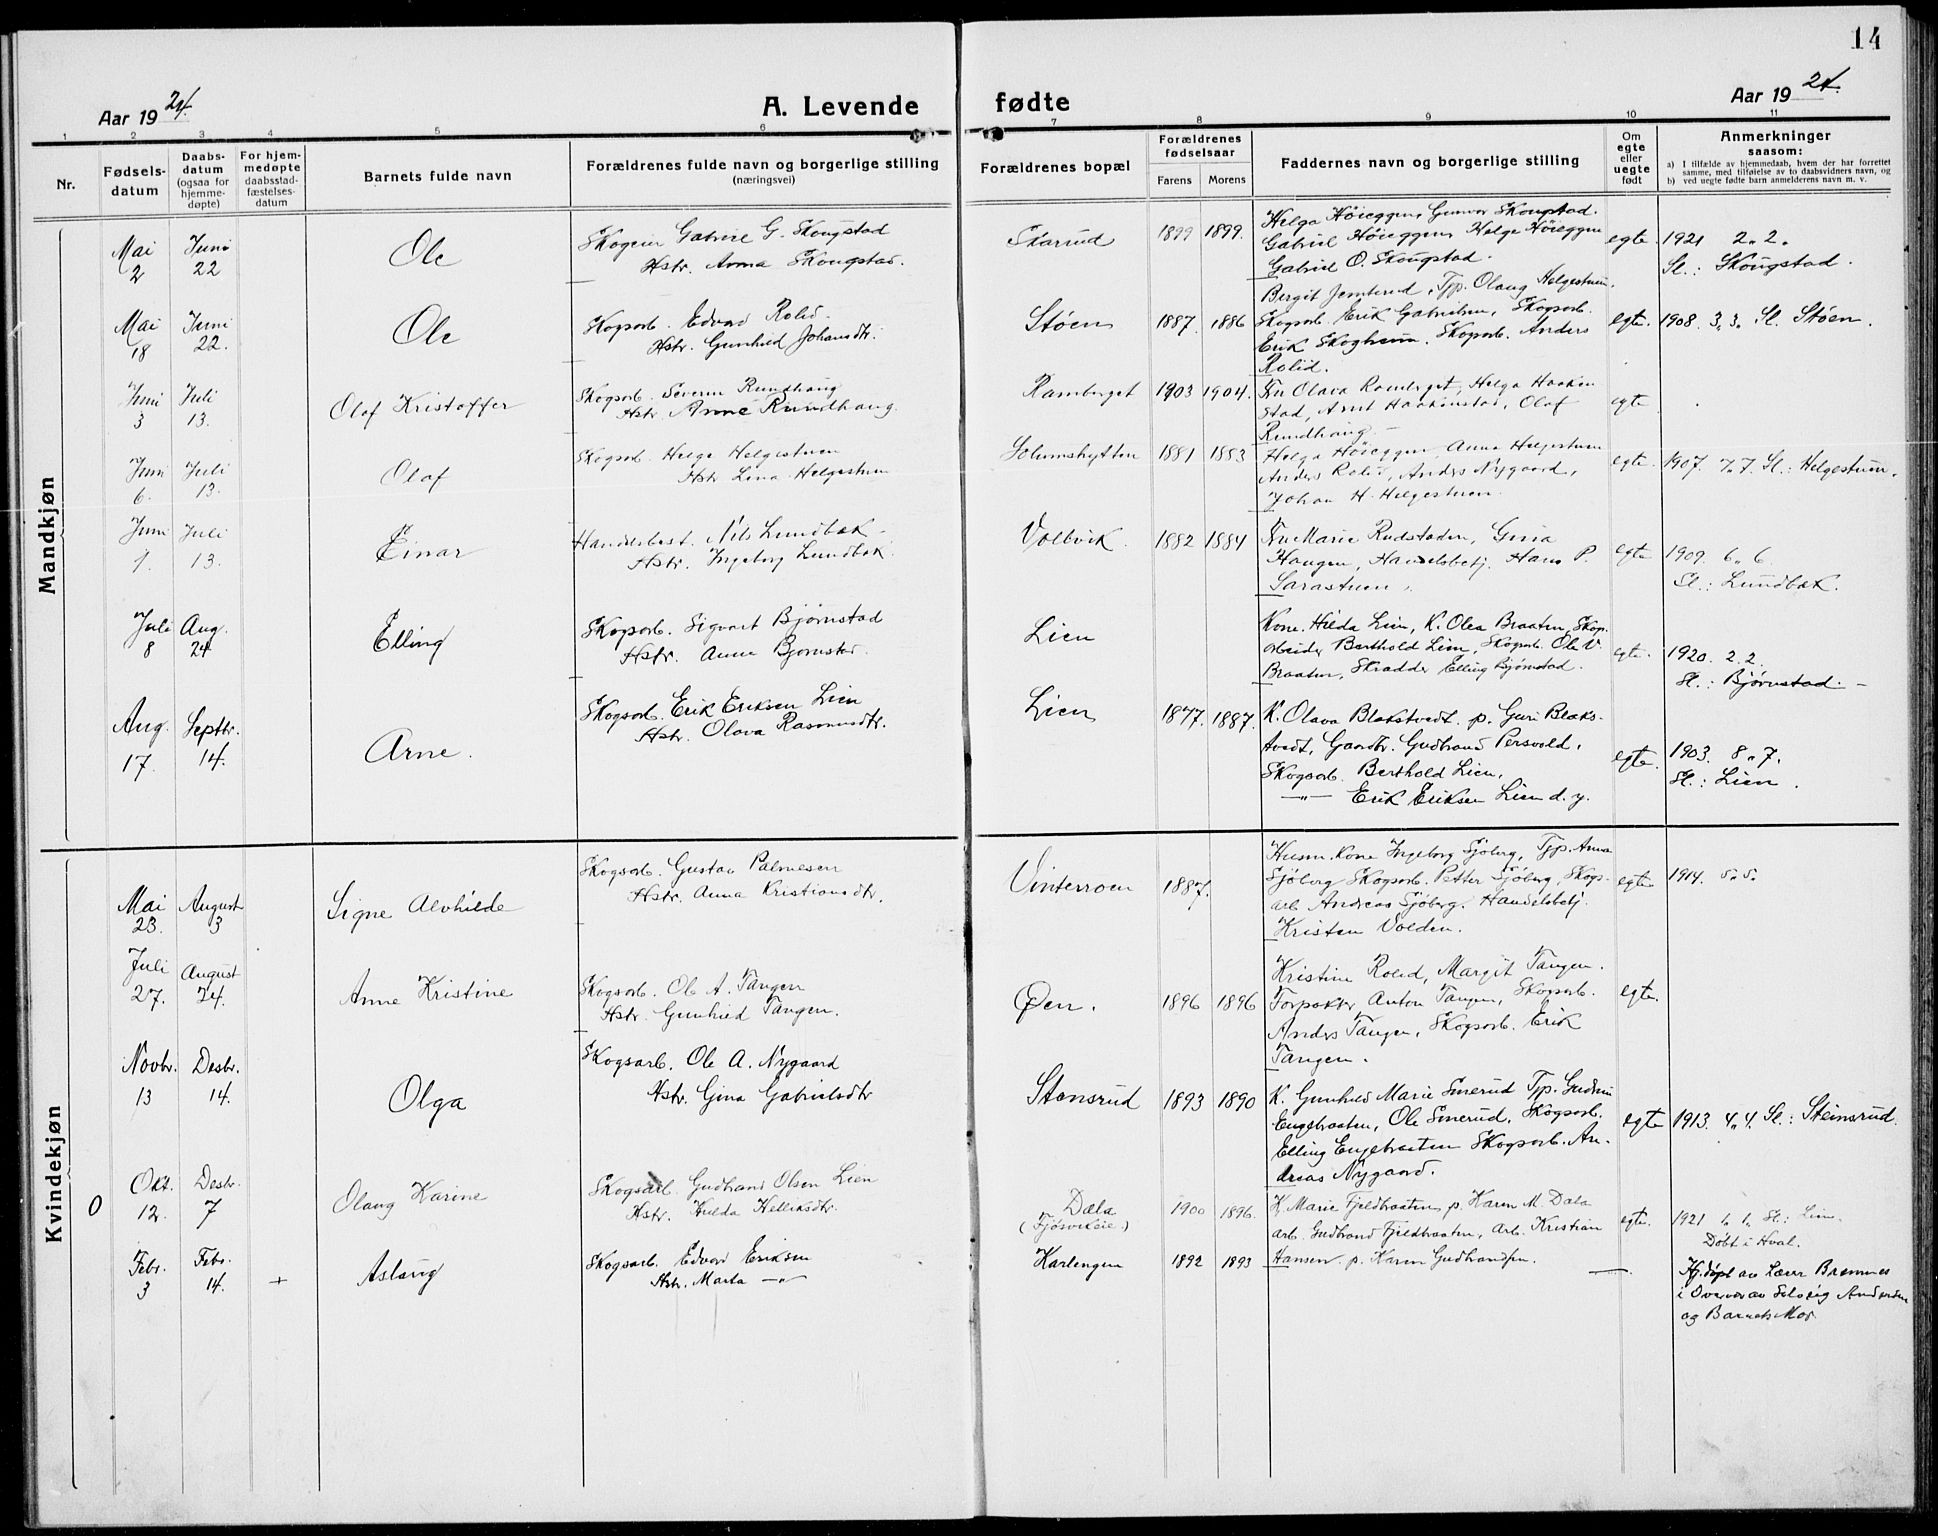 14
Aar 1924.
A. Levende fødte
Aar 1924.
1 2 3 4 5 6 7 8 9 10 11
Nr.
Fødsels-
datum
Daabs-
datum
(ogsaa for
hjemme-
døpte)
For hjem-
medøpte
daabsstad-
fæstelses-
datum
Barnets fulde navn
Forældrenes fulde navn og borgerlige stilling
(næringsvei)
Forældrenes bopæl
Forældrenes
fødselsaar
Farens Morens
Faddernes navn og borgerlige stilling
Om
egte
eller
uegte
født
Anmerkninger
saasom:
a) I tilfælde av hjemmedaab, hvem der har forrettet
samme, med tilføielse av to daabsvidners navn, og
b) ved uegte fødte barn anmelderens navn m. v.
Mandkjøn
Mai 2 Juni 22
Ole
Skogeier Gabriel G. Skougstad
Hstr. Anna Skougstad.
Skarud
1899 1899.
Helga Høieggen, Gunvor Skougstad.
Gabriel Høieggen, Helge Høieggen
Gabriel O. Skougstad.
egte
1921 2. 2.
Sl.: Skougstad.
Mai 18 Juni 22.
Ole
Skogsarb. Edvard Rolid.
Hstr. Gunhild Johansdtr.
Støen
1887. 1886
Bergit Jemterud, Tjp. Olaug Helgestuen,
Skogsarb. Erik Gabrielsen, Skogsarb.
Erik Skogheim. Skogsarb. Anders
Rolid.
egte.
1908. 3. 3. Sl. Støen.
Juni 3 Juli 13.
Olaf Kristoffer
Skogsarb. Severin Rundhaug
Hstr. Anne Rundhaug.
Ramberget
1903 1904.
Fru Olava Ramberget, Helga Haaken
stad, Arnt Haakenstad, Olaf
Rundhaug.
egte
Juni 6. Juli 13.
Olaf
Skogsarb. Helge Helgestuen
Hstr Lina Helgestuen
Solumshytten
1881 1883
Helga Høieggen, Anna Helgestuen
Anders Rolid, Anders Nygaard,
Johan H. Helgestuen.
egte.
1907. 7. 7. Sl.: Helgestuen.
Juni 1. Juli 13.
Einar
Handelsbest. Nils Lundbæk
Hstr. Ingeborg Lundbæk.
Volbvik.
1882 1884
Fru Marie Rudstaden, Gina
Haugen, Handelsbetj. Hans P.
Sarastuen.
egte
1909. 6. 6.
Sl.: Lundbæk.
Juli 8 Aug. 24
Elling
Skogsarb. Sigvart Bjørnstad
Hstr. Anna Bjørnstad.
Lien
Kone. Hilda Lien, K. Olea Braaten, Skog-
arbeider Berthold Lien, Skogsarb. Ole V.
Braaten, Skrædder Elling Bjørnstad.
egte.
1920. 2. 2.
Sl.: Bjørnstad.
Aug. 17. Septbr. 14.
Arne.
Skogsarb. Erik Eriksen Lien
Hstr. Olava Rasmusdtr.
Lien
1877. 1887.
K. Olava Blakstvedt. p. Guri Blaks-
tvedt, Gaardbr. Gudbrand Persvold,
Skogsarb. Berthold Lien,
—"— Erik Eriksen Lien d. y.
egte.
1903. 8. 7.
Sl.: Lien.
Kvindekjøn
Mai 23. August 3
Signe Alvhilde
Skogsarb. Gustav Palmesen
Hstr. Anna Kristiansdtr.
Vinterroen
1887.
Husm. Kone Ingeborg Sjøberg, Tjp. Anna
Sjøberg Skogsarb. Petter Sjøberg, Skogs-
arb Andreas Sjøberg. Handelsbetj.
Kristen Volden.
egte
1914. 5. 5.
Juli 27. August 24.
Anne Kristine
Skogsarb. Ole A. Tangen
Hstr. Gunhild Tangen.
Øen.
1896 1896
Kristine Rolid, Margit Tangen.
Forpakter Anton Tangen, Skogsarb.
Anders Tangen, Skogsarb. Erik
Tangen.
egte.
Novbr. 13 Desbr. 14.
Olga
Skogsarb. Ole A. Nygaard
Hstr. Gina Gabrielsdtr
Stensrud
1893 1890
K. Gunhild Marie Smerud Tjp. Gudrun
Engebraaten, Ole Smerud, Skogsarb.
Elling Engebraaten Skogsarb. An-
dreas Nygaard.
egte
1913. 4. 4. Sl.: Steinsrud.
0
Okt. 12. Desbr. 7
Olaug Karine
Skogsarb. Gudbrand Olsen Lien
Hstr. Hulda Helliksdtr.
Dæla
(Fjøsvikeie)
1900 1896.
K. Marie Fjeldbraaten, p. Karen M. Dæla
arb. Gudbrand Fjeldbraaten, Arb. Kristian
Hansen. p. Karen Gudbrandsen.
egte.
1921 1. 1. Sl.: Lien.
Døbt i Hval.
Febr. 3 Febr. 14. +
Aslaug
Skogsarb. Edvard Eriksen
Hstr. Marta —"—
Karlengen
1892 1893
—
Hj. døpt av Lærer Bremnes
i Overvær av Solveig Andersen
og Barnets Mor.